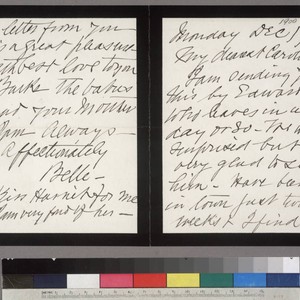 letter from you
is a great pleasure
with best love to you
the babies
and your Mother
I am always
affectionately
Belle -
Kiss Harriet for me
I am very fond of her -
1900
Monday Dec 1
My dearest Caro
I am sending
this by Edward
who leaves in a
day or so -
surprised but
very glad to s
him - Have bee
in town just two
weeks & I find